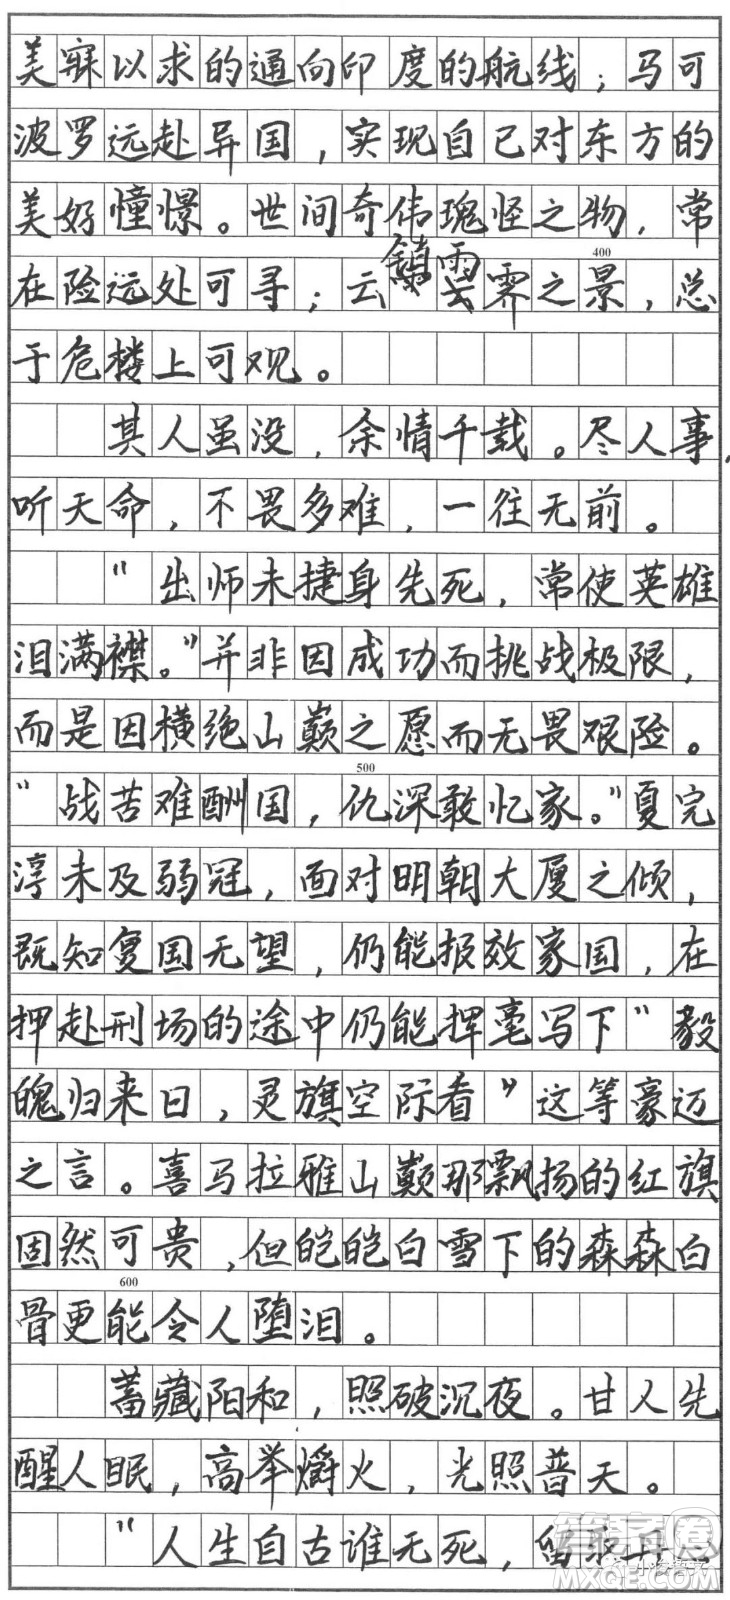 美寐以求的通向印度的航线；马可
波罗远赴异国，实现自己对东方的
美好憧憬。世间奇伟瑰怪之物，常
在险远处可寻；云鎮雲霁之景，总
400
于危楼上可观。
其人虽没，余情千载。尽人事，
听天命，不畏多难，一往无前。
“出师未捷身先死，常使英雄
泪满襟。”并非因成功而挑战极限，
而是因横绝山巅之愿而无畏艰险。
500
“战苦难酬国，仇深敢忆家。”夏完
淳未及弱冠，面对明朝大厦之倾，
既知复国无望，仍能报效家国，在
押赴刑场的途中仍能挥毫写下“毅
魄归来日，灵旗空际看”这等豪迈
之言。喜马拉雅山巅那飘扬的红旗
固然可贵，但皑皑白雪下的森森白
600
骨更能令人堕泪。
蓄藏阳和，照破沉夜。甘人先
醒人眠，高举爝火，光照普天。
“人生自古谁无死，留取丹心
答案圈
MXQE.COM